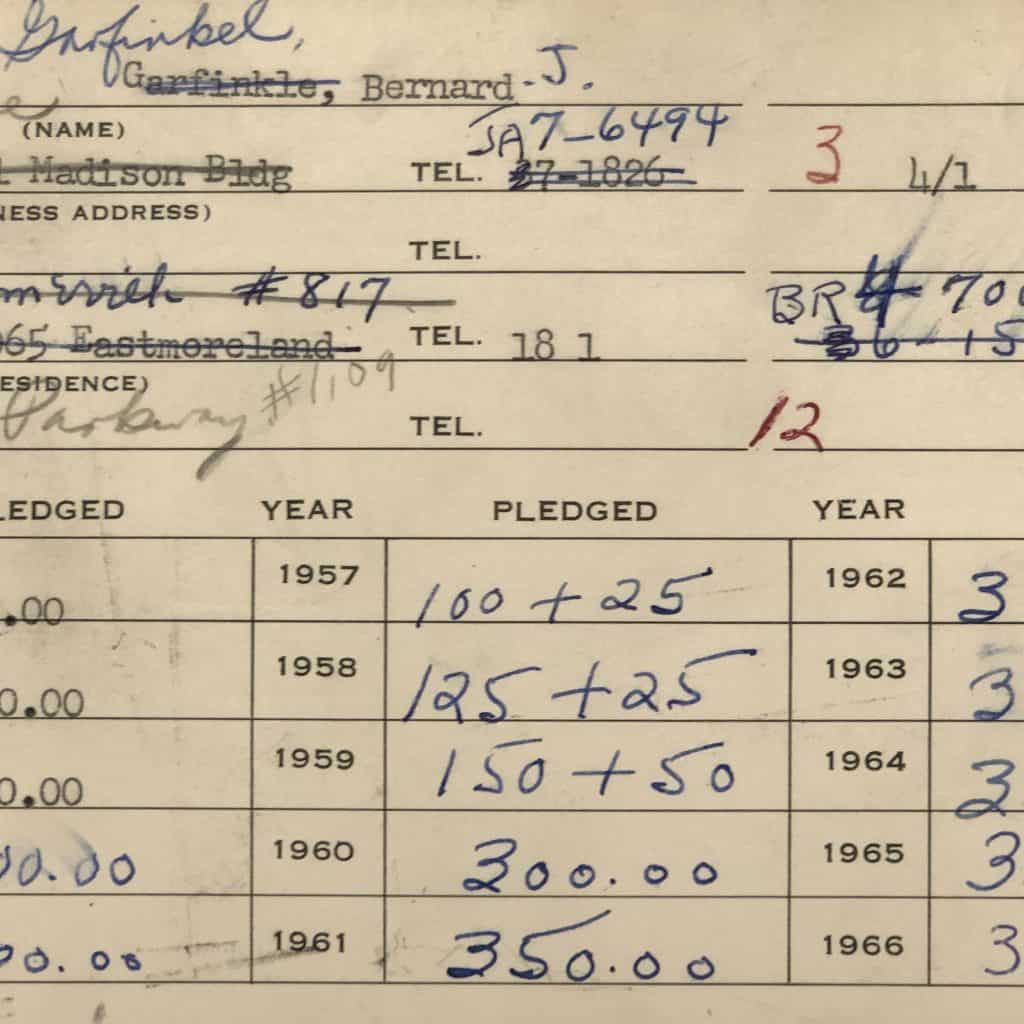 Garfinkel,
Garfinkle, Bernard J.
(NAME)
JA7-6494
1 Madison Bldg TEL. 37-1826 3 4/1
NESS ADDRESS)
TEL.
#817 BR4 700
965 Eastmoreland TEL. 18 1 36-15
ESIDENCE) #1109
Parkway TEL. 12
LEDGED YEAR PLEDGED YEAR
.00 1957 100 + 25 1962 3
0.00 1958 125 + 25 1963 3
0.00 1959 150 + 50 1964 3
00.00 1960 300.00 1965 3
00.00 1961 350.00 1966 3